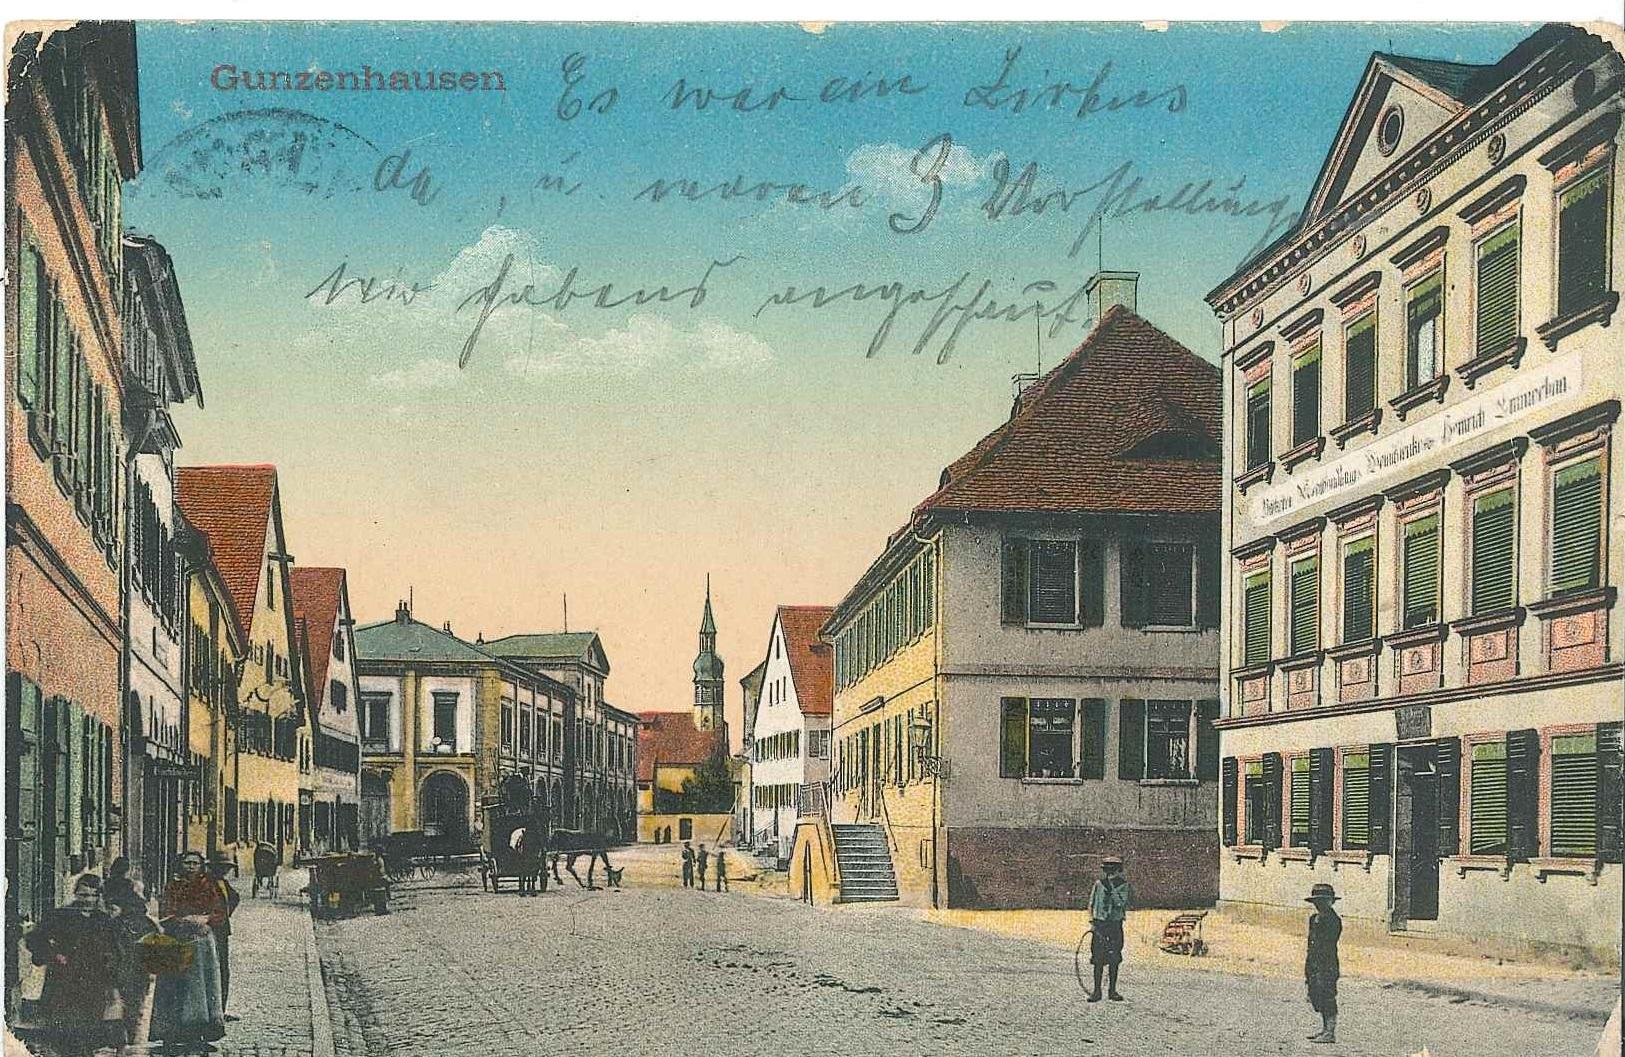 Gunzenhausen
Es war ein Zirkus
da, u waren 3 Vorstellung
wir habens angeschaut.
Heinrich